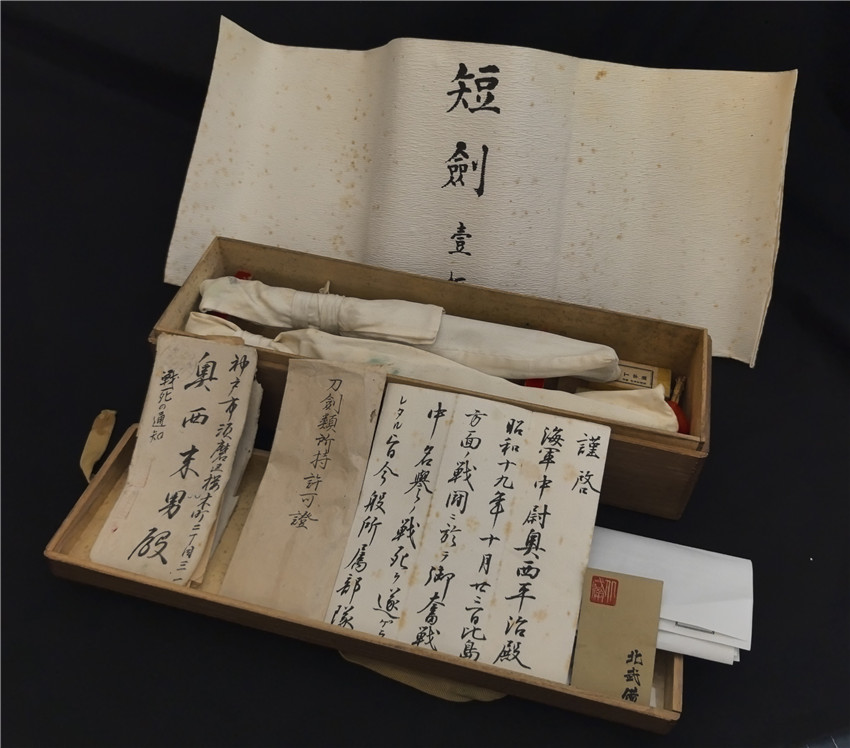 短劍壹
神戸市須磨区桜木町二丁目三ノ一
奥西末男殿
戦死の通知
刀劍類所持許可證
謹啓
海軍中尉奥西平治殿
昭和十九年十月廿三日比島
方面ノ戦闘ニ於テ御奮戦
中名譽ノ戦死ヲ遂ゲラ
レタル旨今般所属部隊
北武備